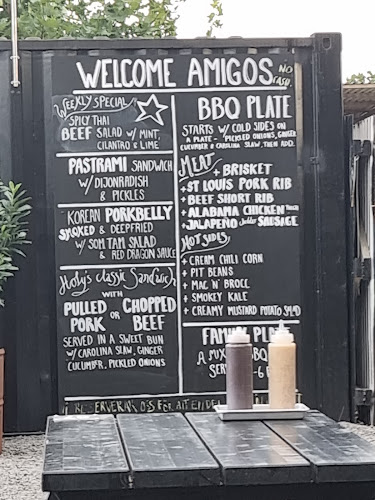 WELCOME AMIGOS
NO
CASH
WEEKLY SPECIAL
SPICY THAI
BEEF SALAD W/ MINT,
CILANTRO & LIME
PASTRAMI SANDWICH
W/ DIJONRADISH
& PICKLES
KOREAN PORKBELLY
SMOKED & DEEPFRIED
W/ SOM TAM SALAD
& RED DRAGON SAUCE
Holy's classic Sandwich
WITH
PULLED PORK OR CHOPPED BEEF
SERVED IN A SWEET BUN
W/ CAROLINA SLAW, GINGER
CUCUMBER, PICKLED ONIONS
BBQ PLATE
STARTS W/ COLD SIDES ON
A PLATE - PICKLED ONIONS, GINGER
CUCUMBER & CAROLINA SLAW, THEN ADD:
MEAT
+ BRISKET
+ ST LOUIS PORK RIB
+ BEEF SHORT RIB
+ ALABAMA CHICKEN
+ JALAPEÑO SAUSAGE
HOT SIDES
+ CREAM CHILI CORN
+ PIT BEANS
+ MAC 'N' BROCC
+ SMOKEY KALE
+ CREAMY MUSTARD POTATO SALAD
A